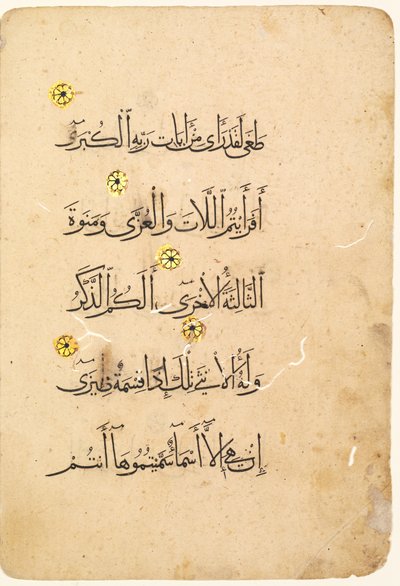 طَغَى لَقَدْ رَأَى مِنْ آيَاتِ رَبِّهِ الْكُبْرَى
أَفَرَأَيْتُمُ اللَّاتَ وَالْعُزَّى وَمَنَوةَ
الثَّالِثَةَ الْأُخْرَى أَلَكُمُ الذَّكَرُ
وَلَهُ الْأُنْثَى تِلْكَ إِذًا قِسْمَةٌ ضِيزَى
إِنْ هِيَ إِلَّا أَسْمَاءٌ سَمَّيْتُمُوهَا أَنْتُمْ